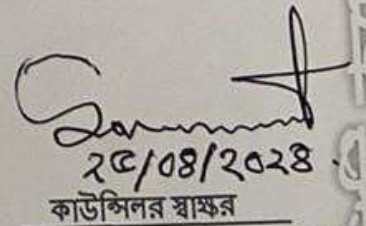 ২৫/০৪/২০২৪
কাউন্সিলর স্বাক্ষর